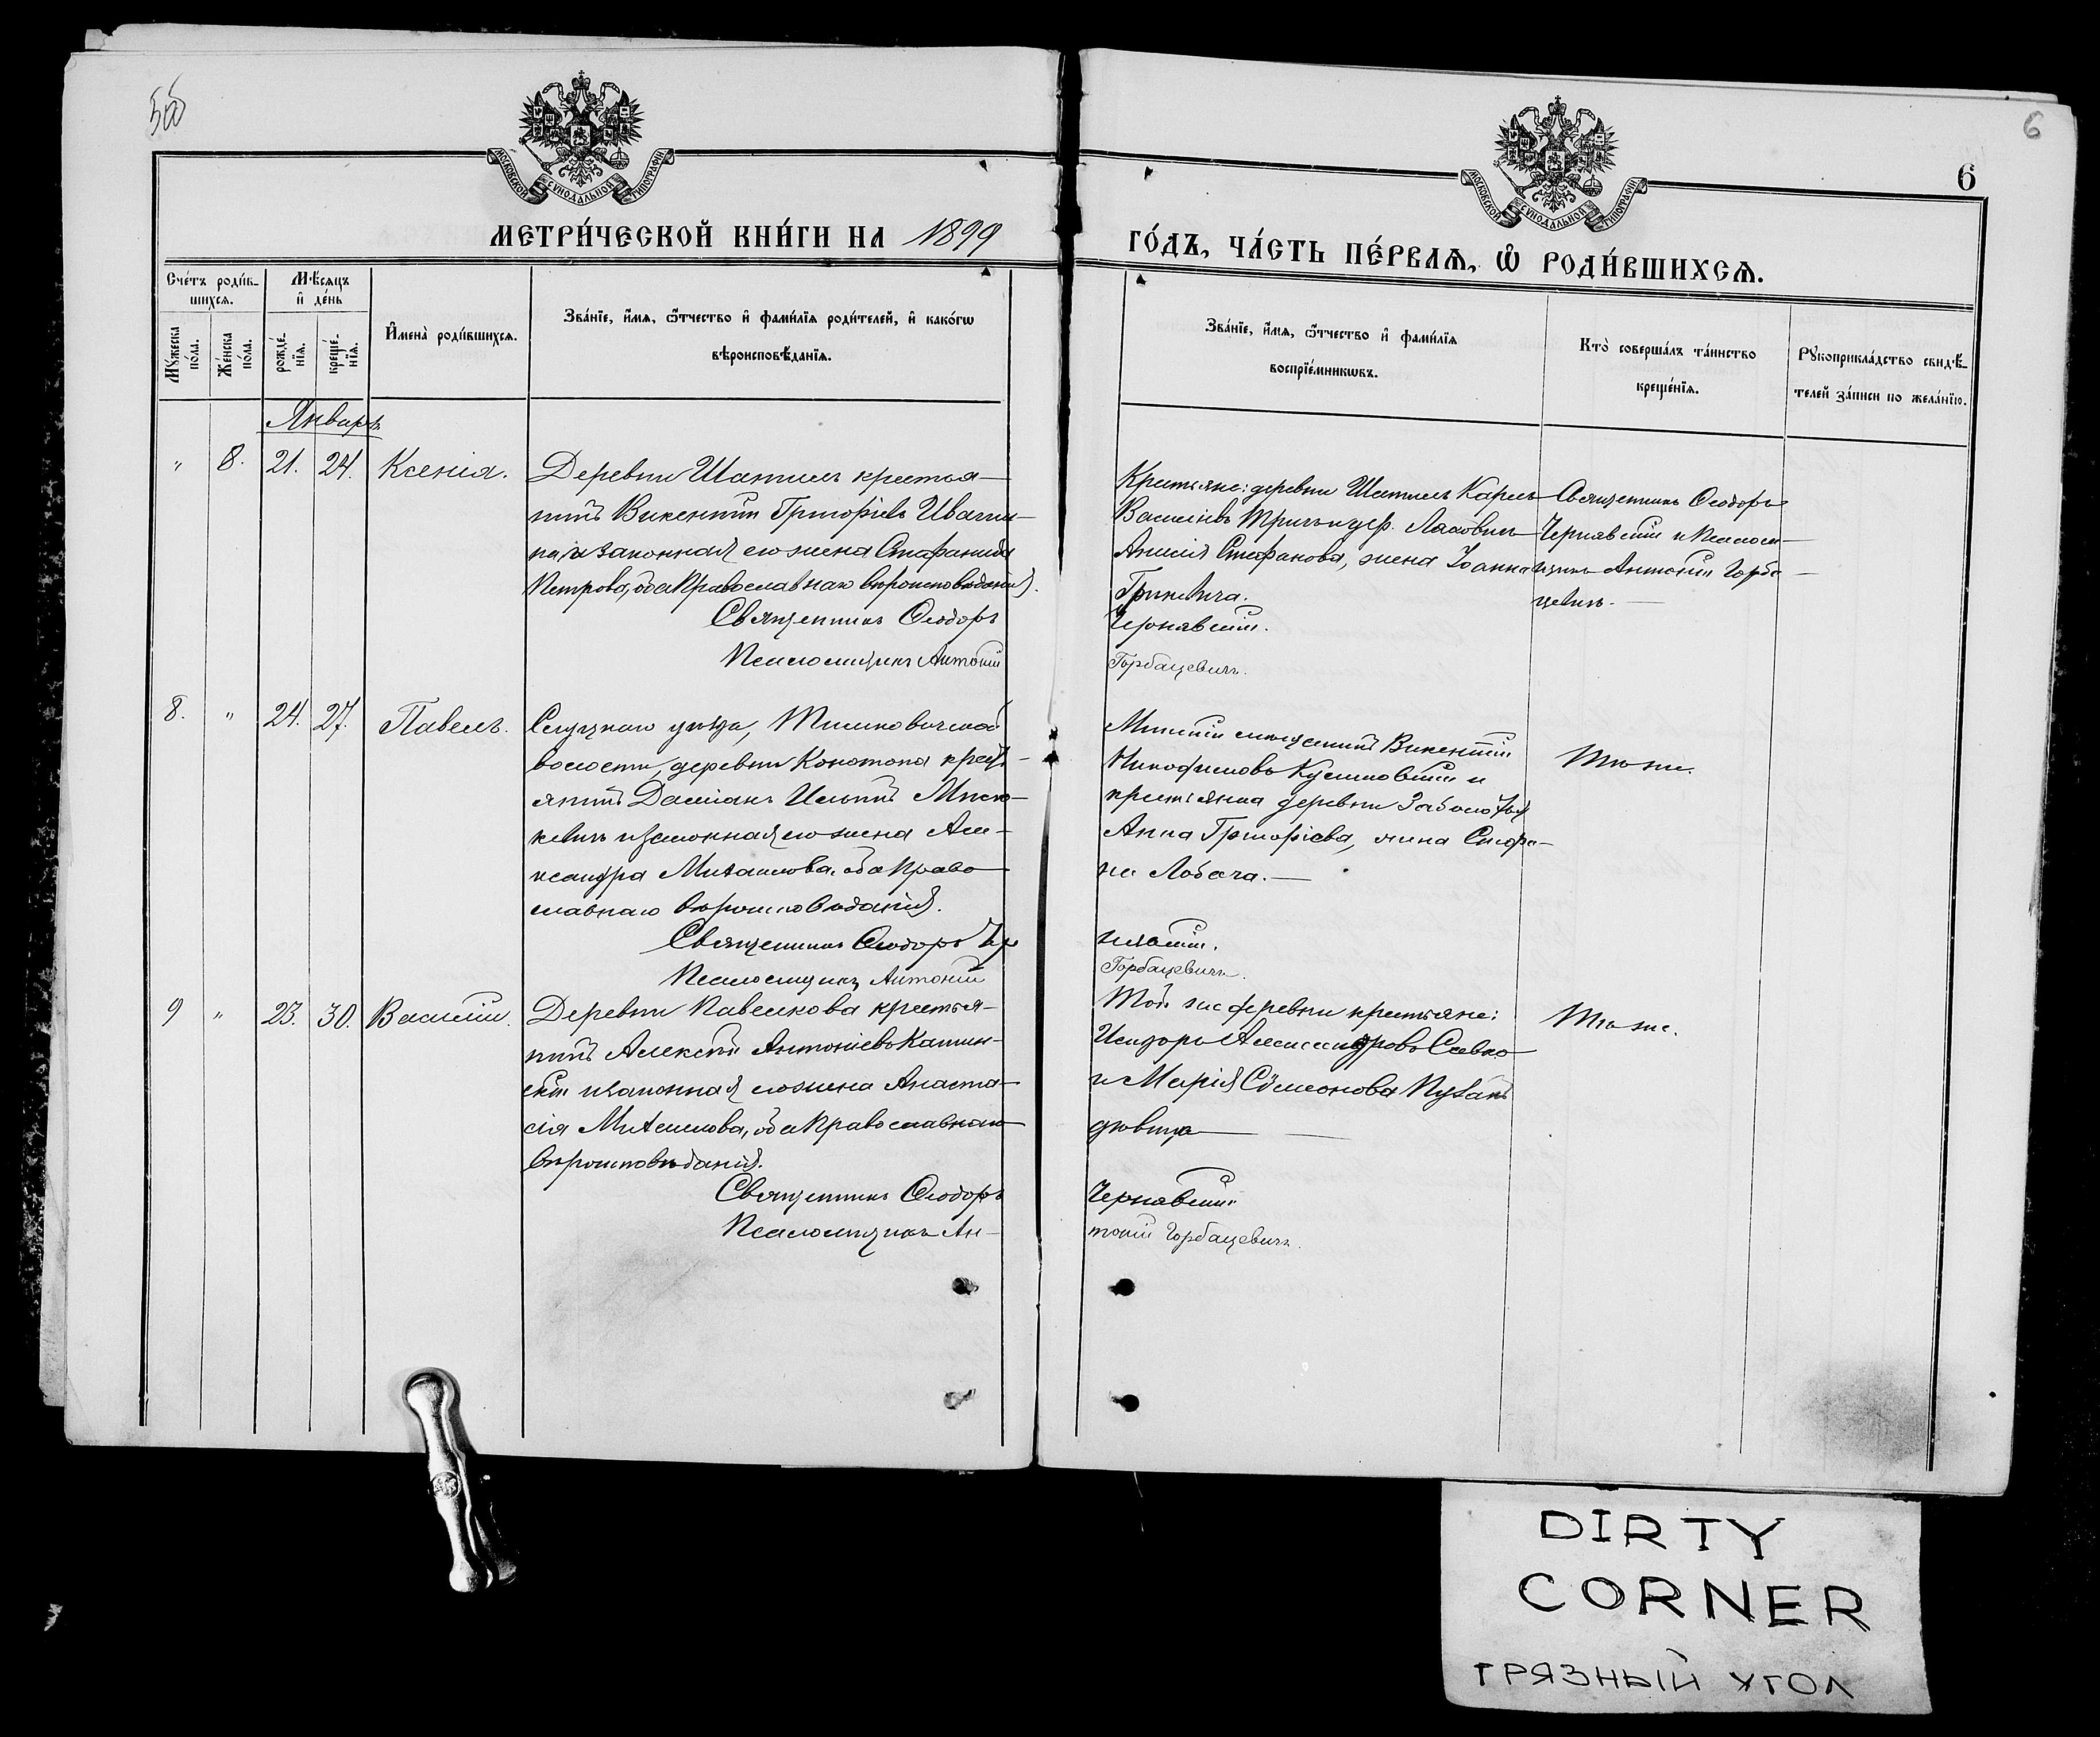 5об
6
6
МОСКОВСКОЙ СѴНОДАЛЬНОЙ ТИПОГРАФІИ
МОСКОВСКОЙ СѴНОДАЛЬНОЙ ТИПОГРАФІИ
МЕТРИ́ЧЕСКОЙ КНИ́ГИ НА 1899
ГО́ДЪ, ЧА́СТЬ ПЕ́РВАѦ, Ѡ҆ РОДИ́ВШИХСѦ.
Сче́тъ роди́в-
шихсѧ.
Мꙋ́жеска по́ла.
Же́нска по́ла.
Мѣ́сѧцъ
и҆ де́нь
рожде́-
нїѧ.
креще́-
нїѧ.
И҆мена̀ роди́вшихсѧ.
Зва́нїе, и҆́мѧ, ѻ҆́тчество и҆ фами́лїѧ роди́телей, и҆ како́гѡ
вѣроисповѣ́данїѧ.
Зва́нїе, и҆́мѧ, ѻ҆́тчество и҆ фами́лїѧ
воспрїе́мникѡвъ.
Кто̀ соверша́лъ та́инство
креще́нїѧ.
Рꙋкоприкла́дство свидѣ́-
телей за́писи по жела́нїю.
Январь
" 8. 21. 24. Ксенія.
Деревни Шатилъ крестья-
нинъ Викентій Григоріевъ
и законная его жена Стефанида
Петрова, оба православнаго вѣроисповѣданія.
Священникъ Ѳеодоръ
Псаломщикъ Антоній
Крестьяне: деревни Шатилъ Карлъ
Васильевъ и дер.
Стефанова, жена Іоанна
Гриневича.
Чернявскій.
Горбацевичъ.
Священникъ Ѳеодоръ
Чернявскій и псалом-
щикъ Антоній Горба-
цевичъ.
8. " 24. 27. Павелъ.
Слуцкаго уѣзда,
волости, деревни Конотопа крест-
янинъ Даміанъ Ильинъ
кевичъ и законная его жена Але-
ксандра Михаилова, оба право-
славнаго вѣроисповѣданія.
Священникъ Ѳеодоръ Чер
Псаломщикъ Антоній
Минскій мѣщанинъ Викентій
и
крестьянка деревни Заболотья
Анна Григоріева, жена Стефа-
на Лобача.
нявскій.
Горбацевичъ.
Тѣ же.
9 " 23. 30. Василій.
Деревни Павелкова крестья-
нинъ Алексѣй Антоніевъ Камин-
скій и законная его жена Анаста-
сія Михаилова, оба православнаго
вѣроисповѣданія.
Священникъ Ѳеодоръ
Псаломщикъ Ан-
Той же деревни крестьяне:
Исидоръ Александровъ Савко
и Марія Сѵмеонова
дѣвица
Чернявскій
тоній Горбацевичъ.
Тѣ же.
DIRTY
CORNER
ГРЯЗНЫЙ УГОЛ